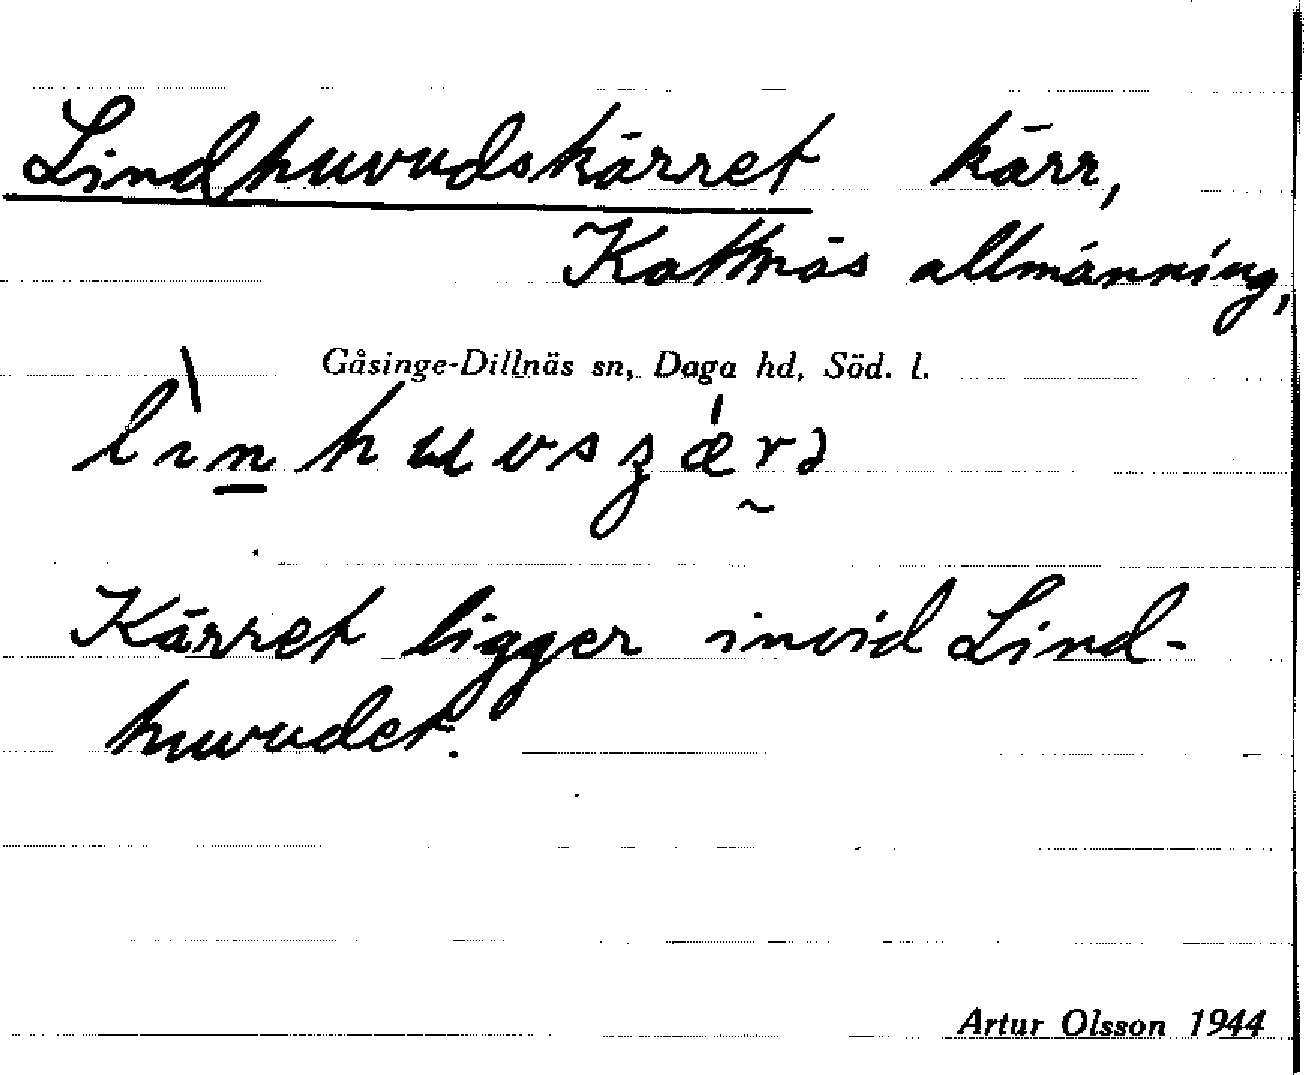 Lindhuvudskärret kärr,
Kattnäs allmänning,
Gåsinge-Dillnäs sn, Daga hd, Söd. l.
Kärret ligger invid Lind-
huvudet.
Artur Olsson 1944